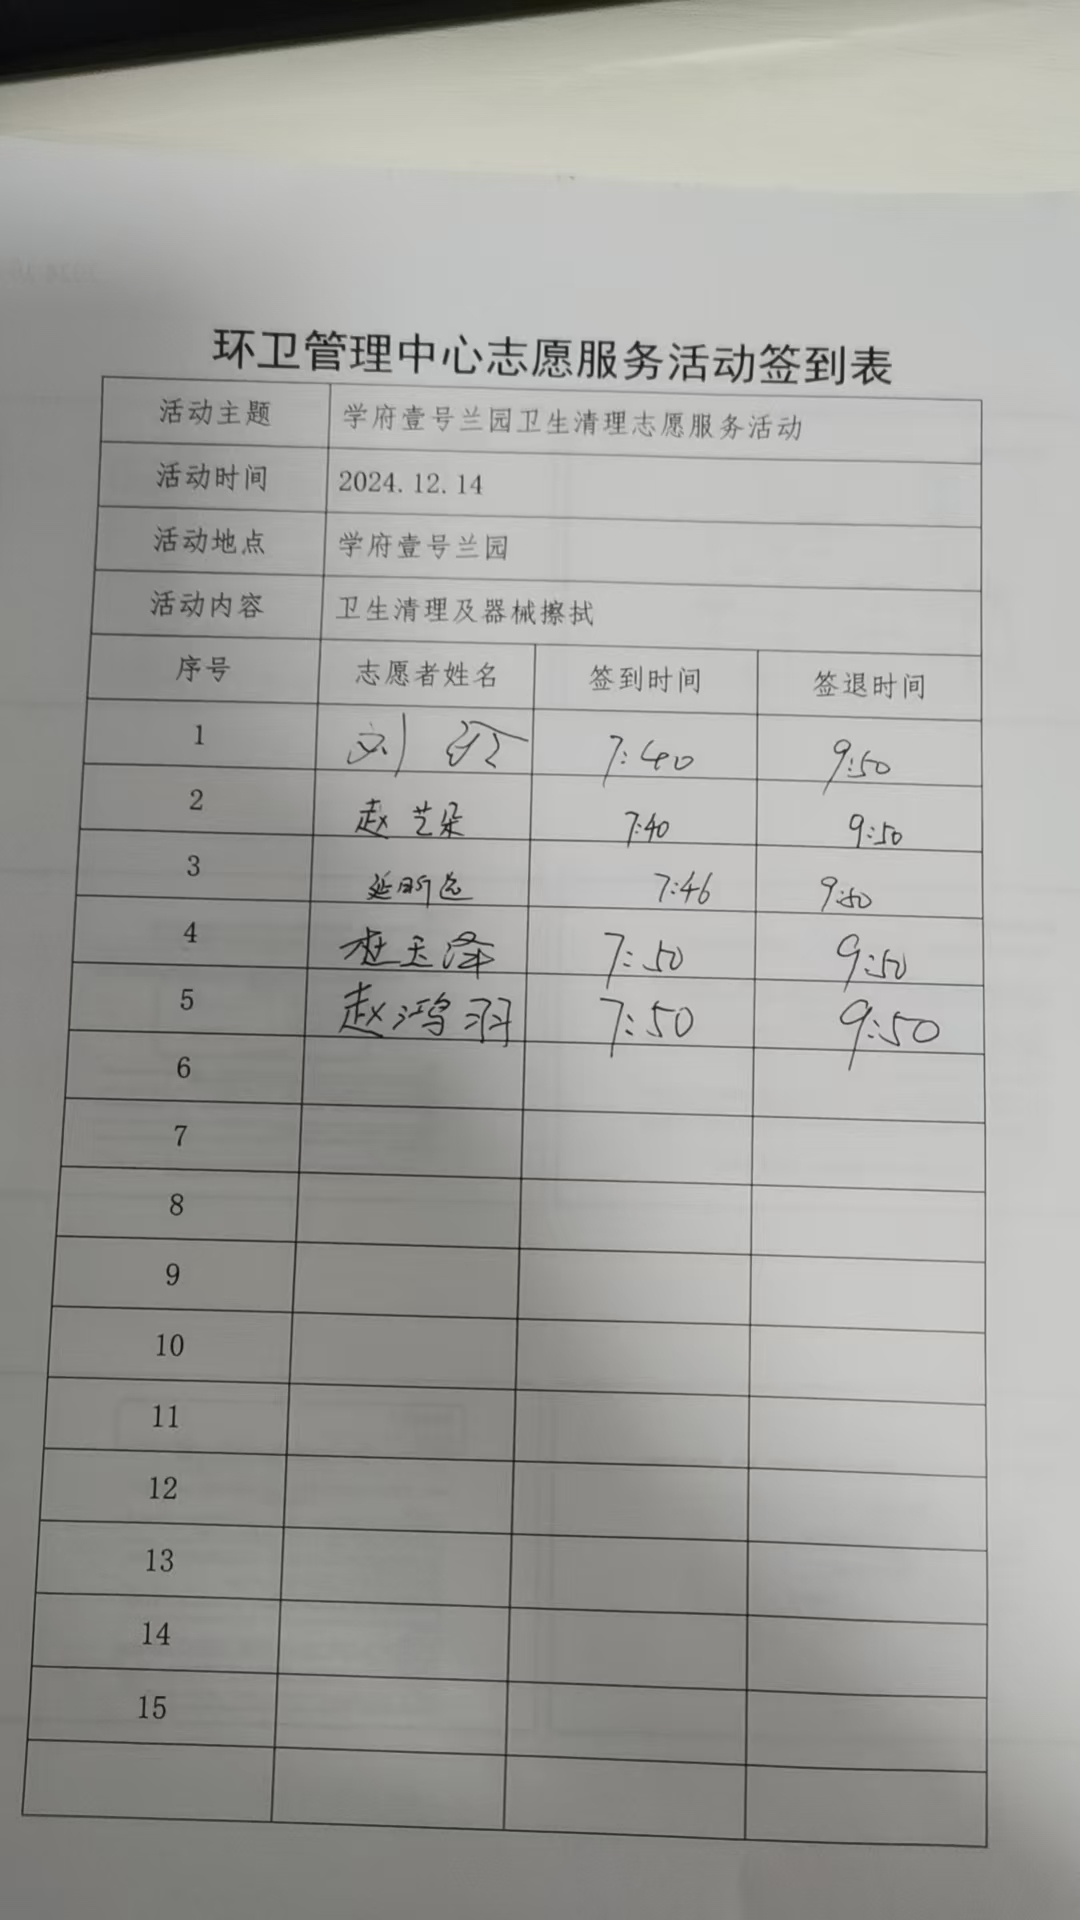 环卫管理中心志愿服务活动签到表
活动主题 学府壹号兰园卫生清理志愿服务活动
活动时间 2024.12.14
活动地点 学府壹号兰园
活动内容 卫生清理及器械擦拭
序号 志愿者姓名 签到时间 签退时间
1 刘 7:40 9:50
2 赵艺朵 7:40 9:50
3 延 7:46 9:50
4 杜玉泽 7:50 9:50
5 赵鸿羽 7:50 9:50
6
7
8
9
10
11
12
13
14
15